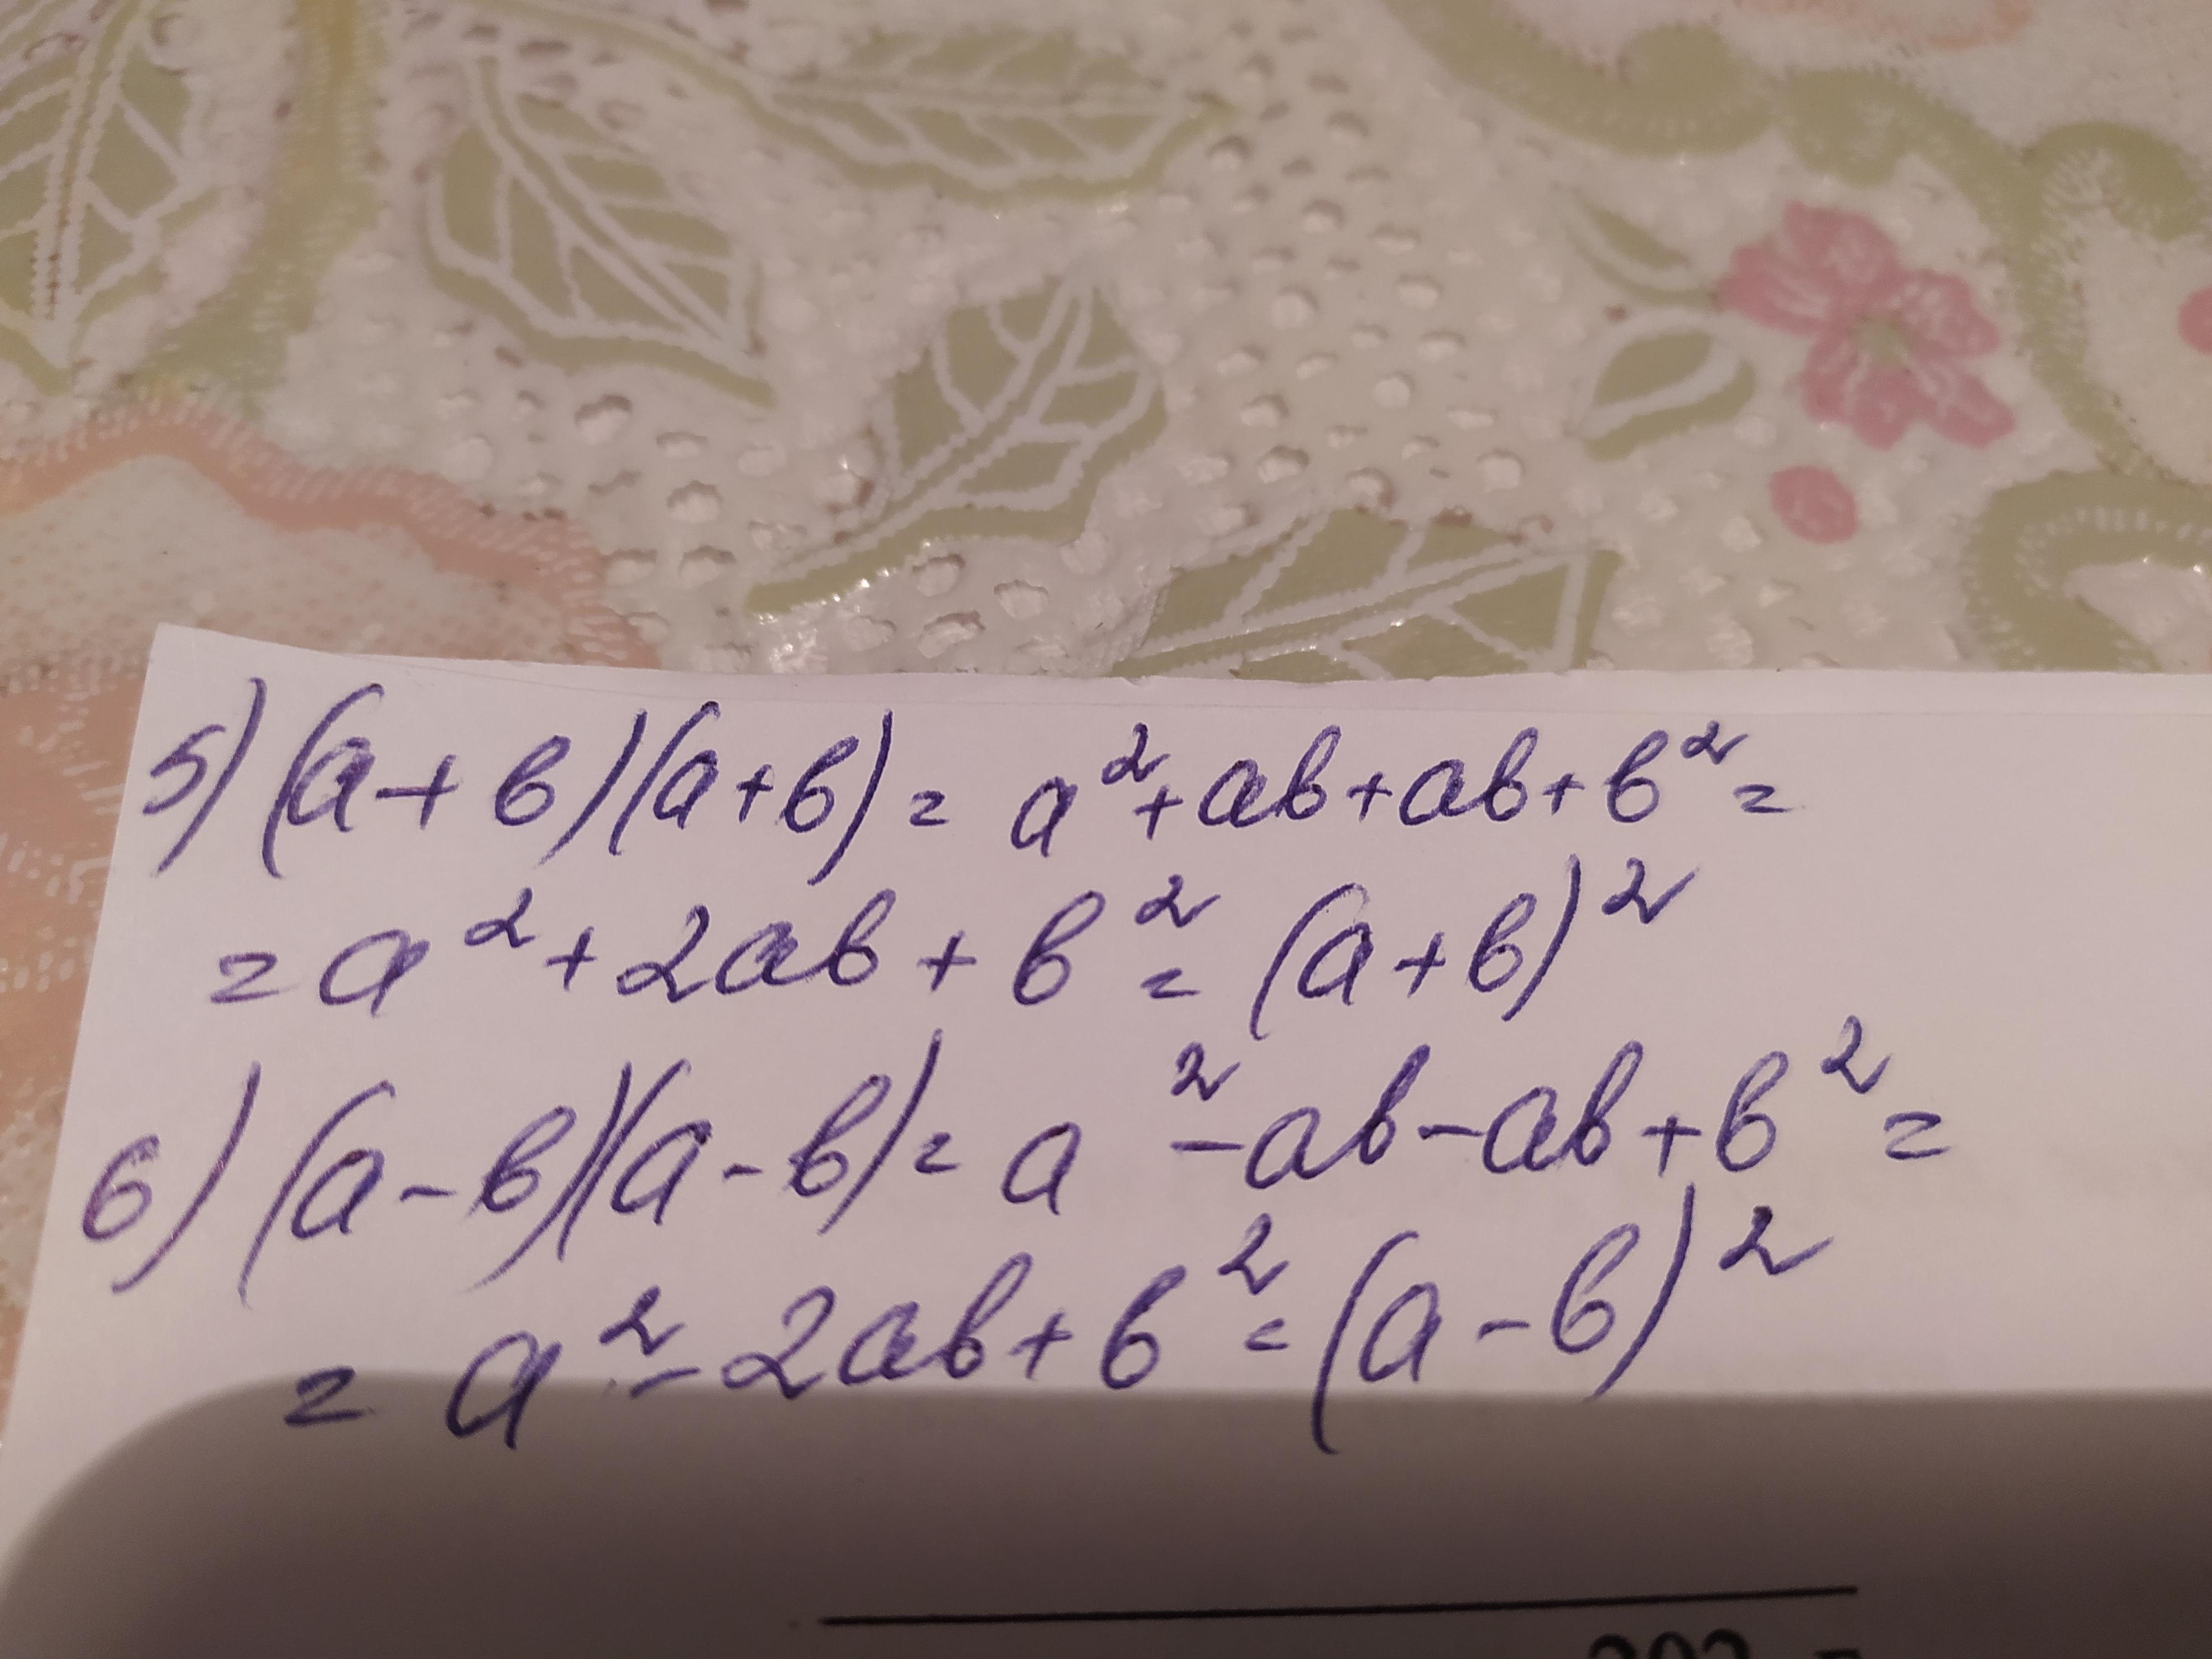 5) (a+b)(a+b) = a²+ab+ab+b² =
= a²+2ab+b² = (a+b)²
6) (a-b)(a-b) = a²-ab-ab+b² =
= a²-2ab+b² = (a-b)²